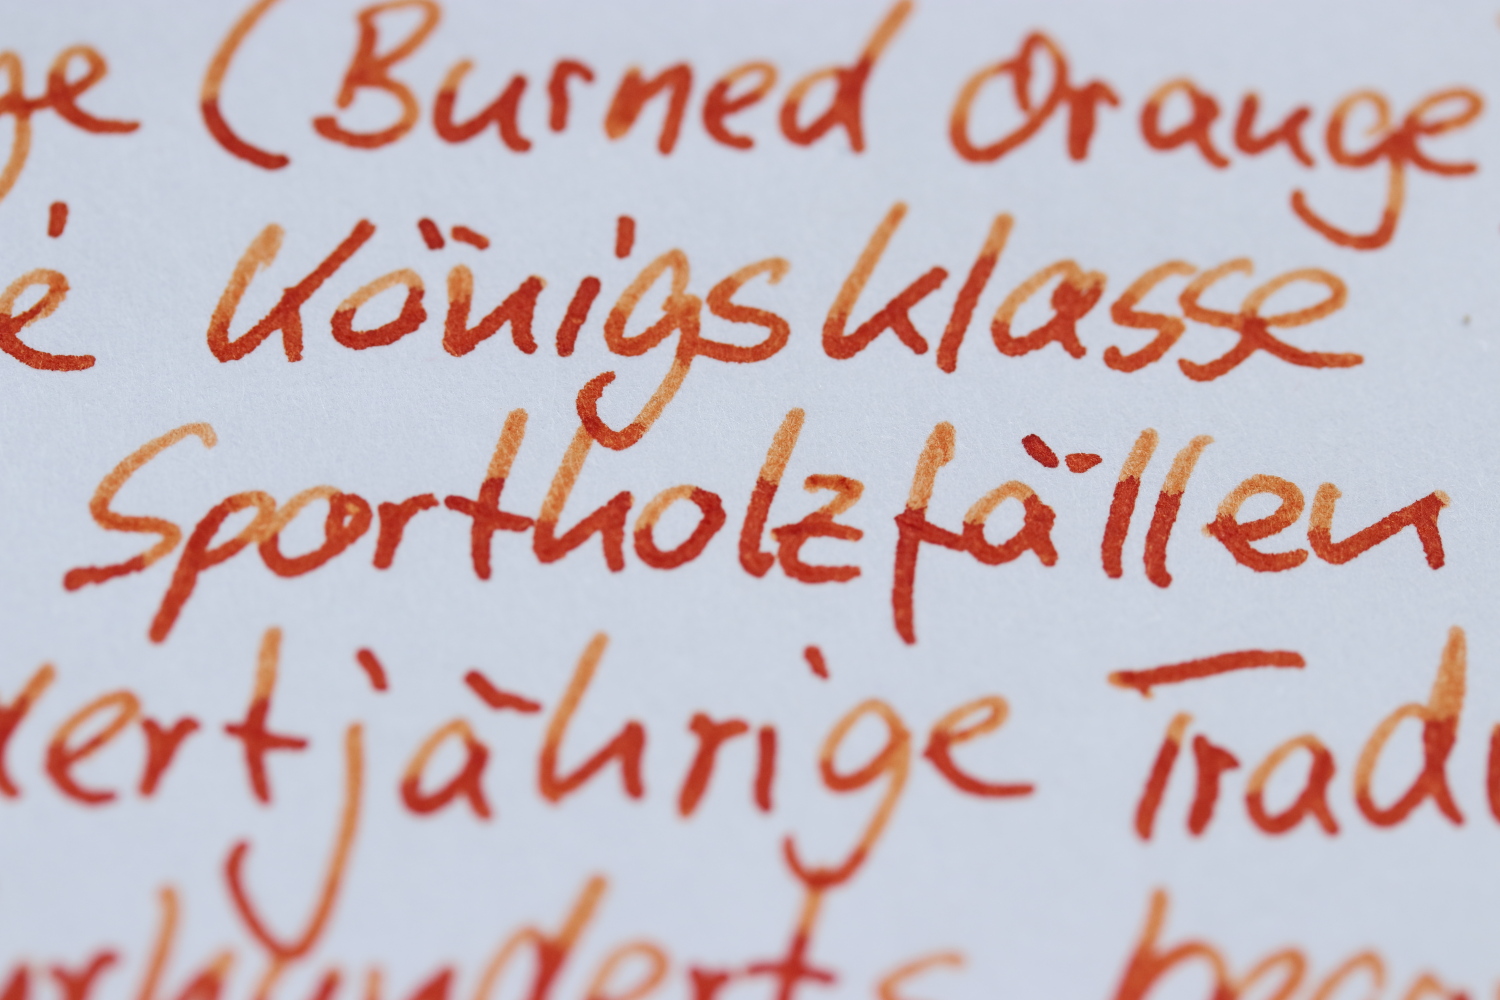 ge (Burned Orange
e Königsklasse
Sportholzfällen
ertjährige Trad